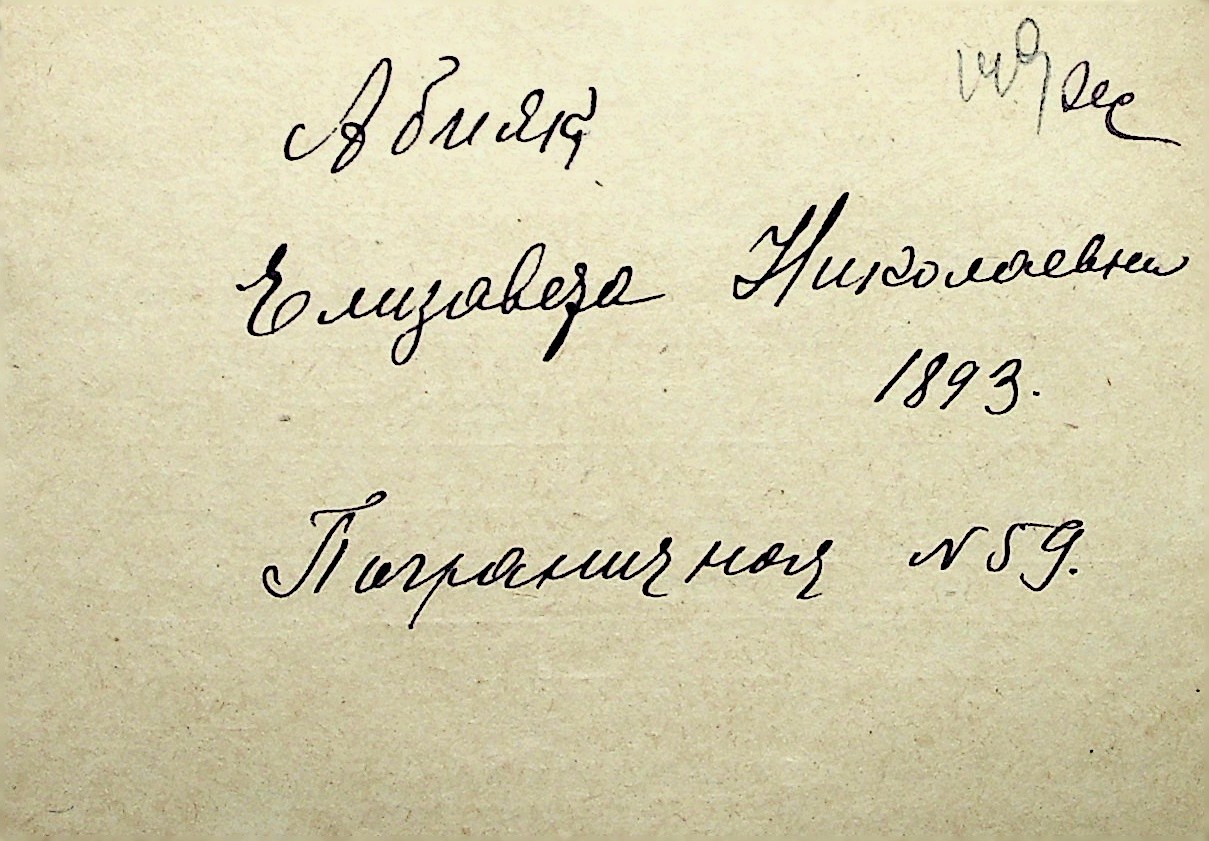 Абияк
Елизавета Николаевна
1893.
Пограничная N 59.